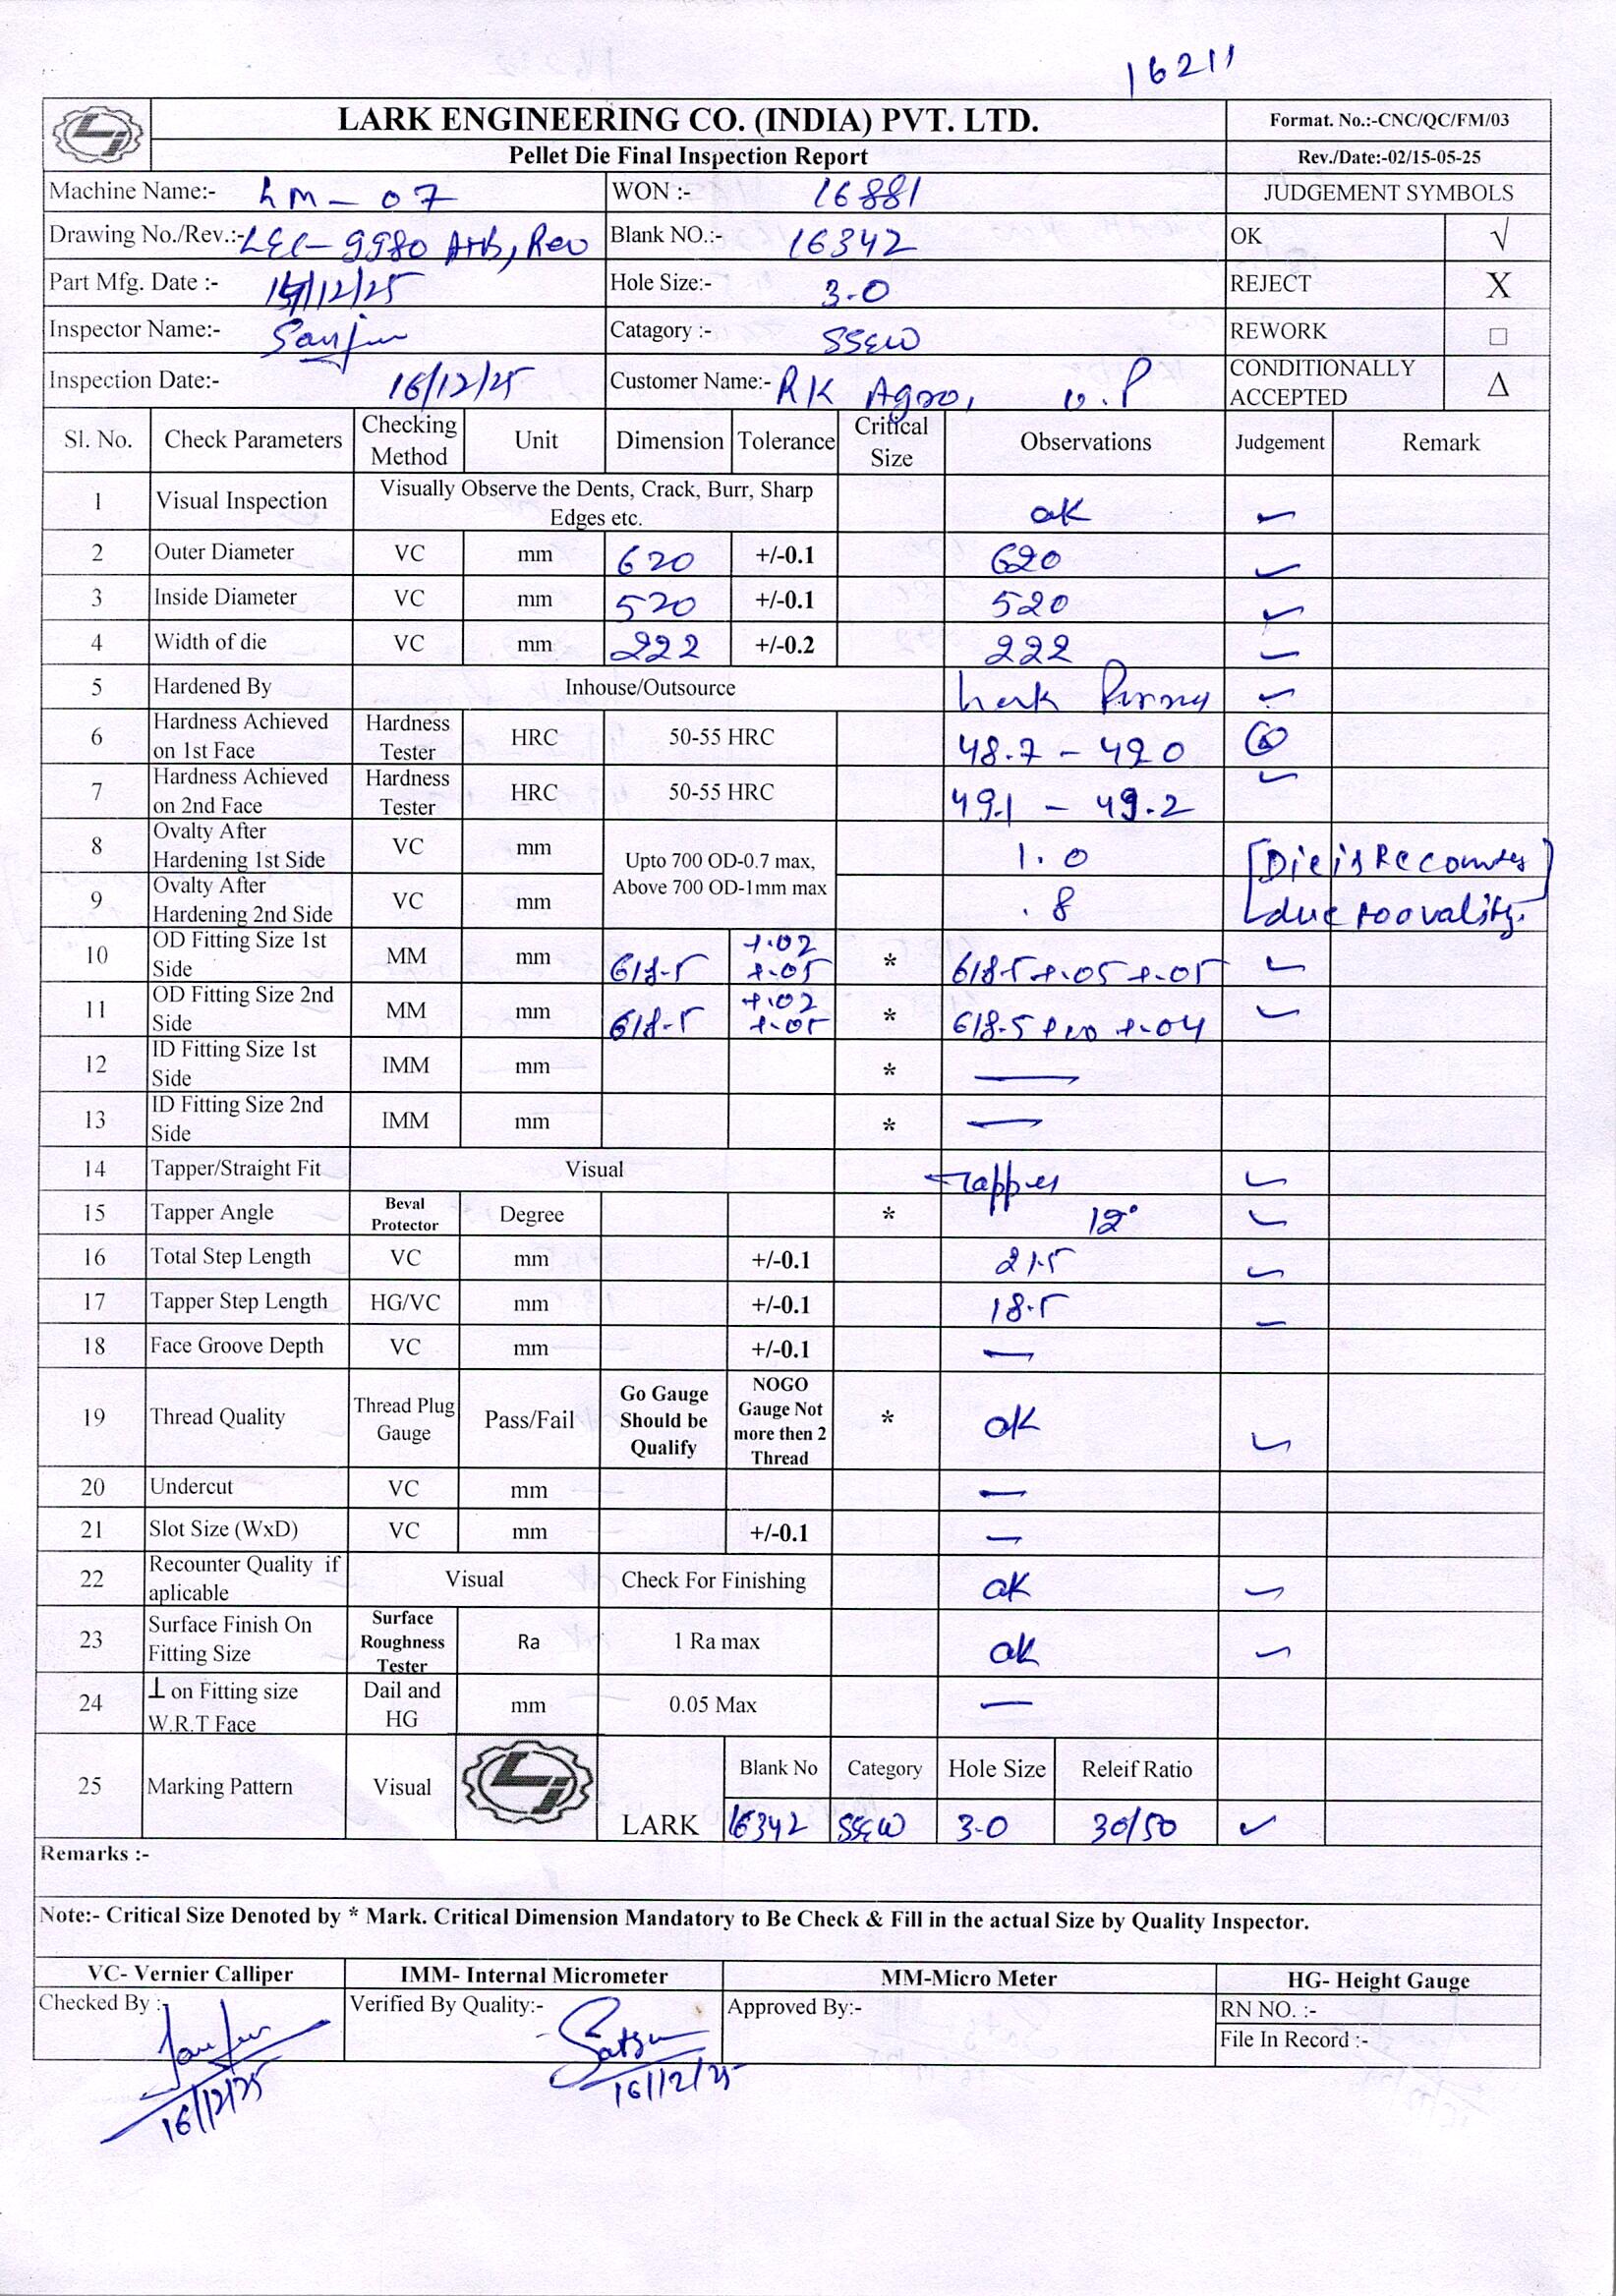 16211
LARK ENGINEERING CO. (INDIA) PVT. LTD.
Format. No.:-CNC/QC/FM/03
Pellet Die Final Inspection Report
Rev./Date:-02/15-05-25
Machine Name:- LM - 07 WON :- 16881 JUDGEMENT SYMBOLS
Drawing No./Rev.:- LEC-9980 Blank NO.:- 16342 OK √
Part Mfg. Date :- /12/25 Hole Size:- 3.0 REJECT X
Inspector Name:- Catagory :- SSEW REWORK □
Inspection Date:- 16/12/25 Customer Name:- RK Agro, U.P CONDITIONALLY ACCEPTED Δ
Sl. No. Check Parameters Checking Method Unit Dimension Tolerance Critical Size Observations Judgement Remark
1 Visual Inspection Visually Observe the Dents, Crack, Burr, Sharp Edges etc. ok ✓
2 Outer Diameter VC mm 620 +/-0.1 620 ✓
3 Inside Diameter VC mm 520 +/-0.1 520 ✓
4 Width of die VC mm 222 +/-0.2 222 ✓
5 Hardened By Inhouse/Outsource Lark ✓
6 Hardness Achieved on 1st Face Hardness Tester HRC 50-55 HRC 48.7 - 490
7 Hardness Achieved on 2nd Face Hardness Tester HRC 50-55 HRC 49.1 - 49.2 ✓
8 Ovalty After Hardening 1st Side VC mm Upto 700 OD-0.7 max, Above 700 OD-1mm max 1.0 [Die is Recounter
9 Ovalty After Hardening 2nd Side VC mm .8 due to ovality.]
10 OD Fitting Size 1st Side MM mm 618.5 +.02 +.05 * 618.5 +.05 +.05 ✓
11 OD Fitting Size 2nd Side MM mm 618.5 +.02 +.05 * 618.5 +.04 ✓
12 ID Fitting Size 1st Side IMM mm * —
13 ID Fitting Size 2nd Side IMM mm * —
14 Tapper/Straight Fit Visual Tapper ✓
15 Tapper Angle Beval Protector Degree * 12° ✓
16 Total Step Length VC mm +/-0.1 21.5 ✓
17 Tapper Step Length HG/VC mm +/-0.1 18.5 ✓
18 Face Groove Depth VC mm +/-0.1 —
19 Thread Quality Thread Plug Gauge Pass/Fail Go Gauge Should be Qualify NOGO Gauge Not more then 2 Thread * ok ✓
20 Undercut VC mm —
21 Slot Size (WxD) VC mm +/-0.1 —
22 Recounter Quality if aplicable Visual Check For Finishing ok ✓
23 Surface Finish On Fitting Size Surface Roughness Tester Ra 1 Ra max ok ✓
24 ⊥ on Fitting size W.R.T Face Dail and HG mm 0.05 Max —
25 Marking Pattern Visual LARK Blank No Category Hole Size Releif Ratio
16342 SSEW 3.0 30/50 ✓
Remarks :-
Note:- Critical Size Denoted by * Mark. Critical Dimension Mandatory to Be Check & Fill in the actual Size by Quality Inspector.
VC- Vernier Calliper IMM- Internal Micrometer MM-Micro Meter HG- Height Gauge
Checked By :- Verified By Quality:- Approved By:- RN NO. :-
File In Record :-
16/12/25 16/12/25